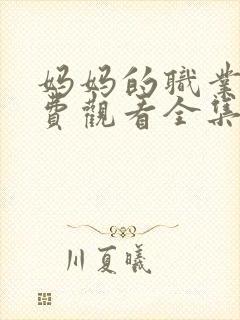 妈妈的職業
費觀看全集
川夏曦